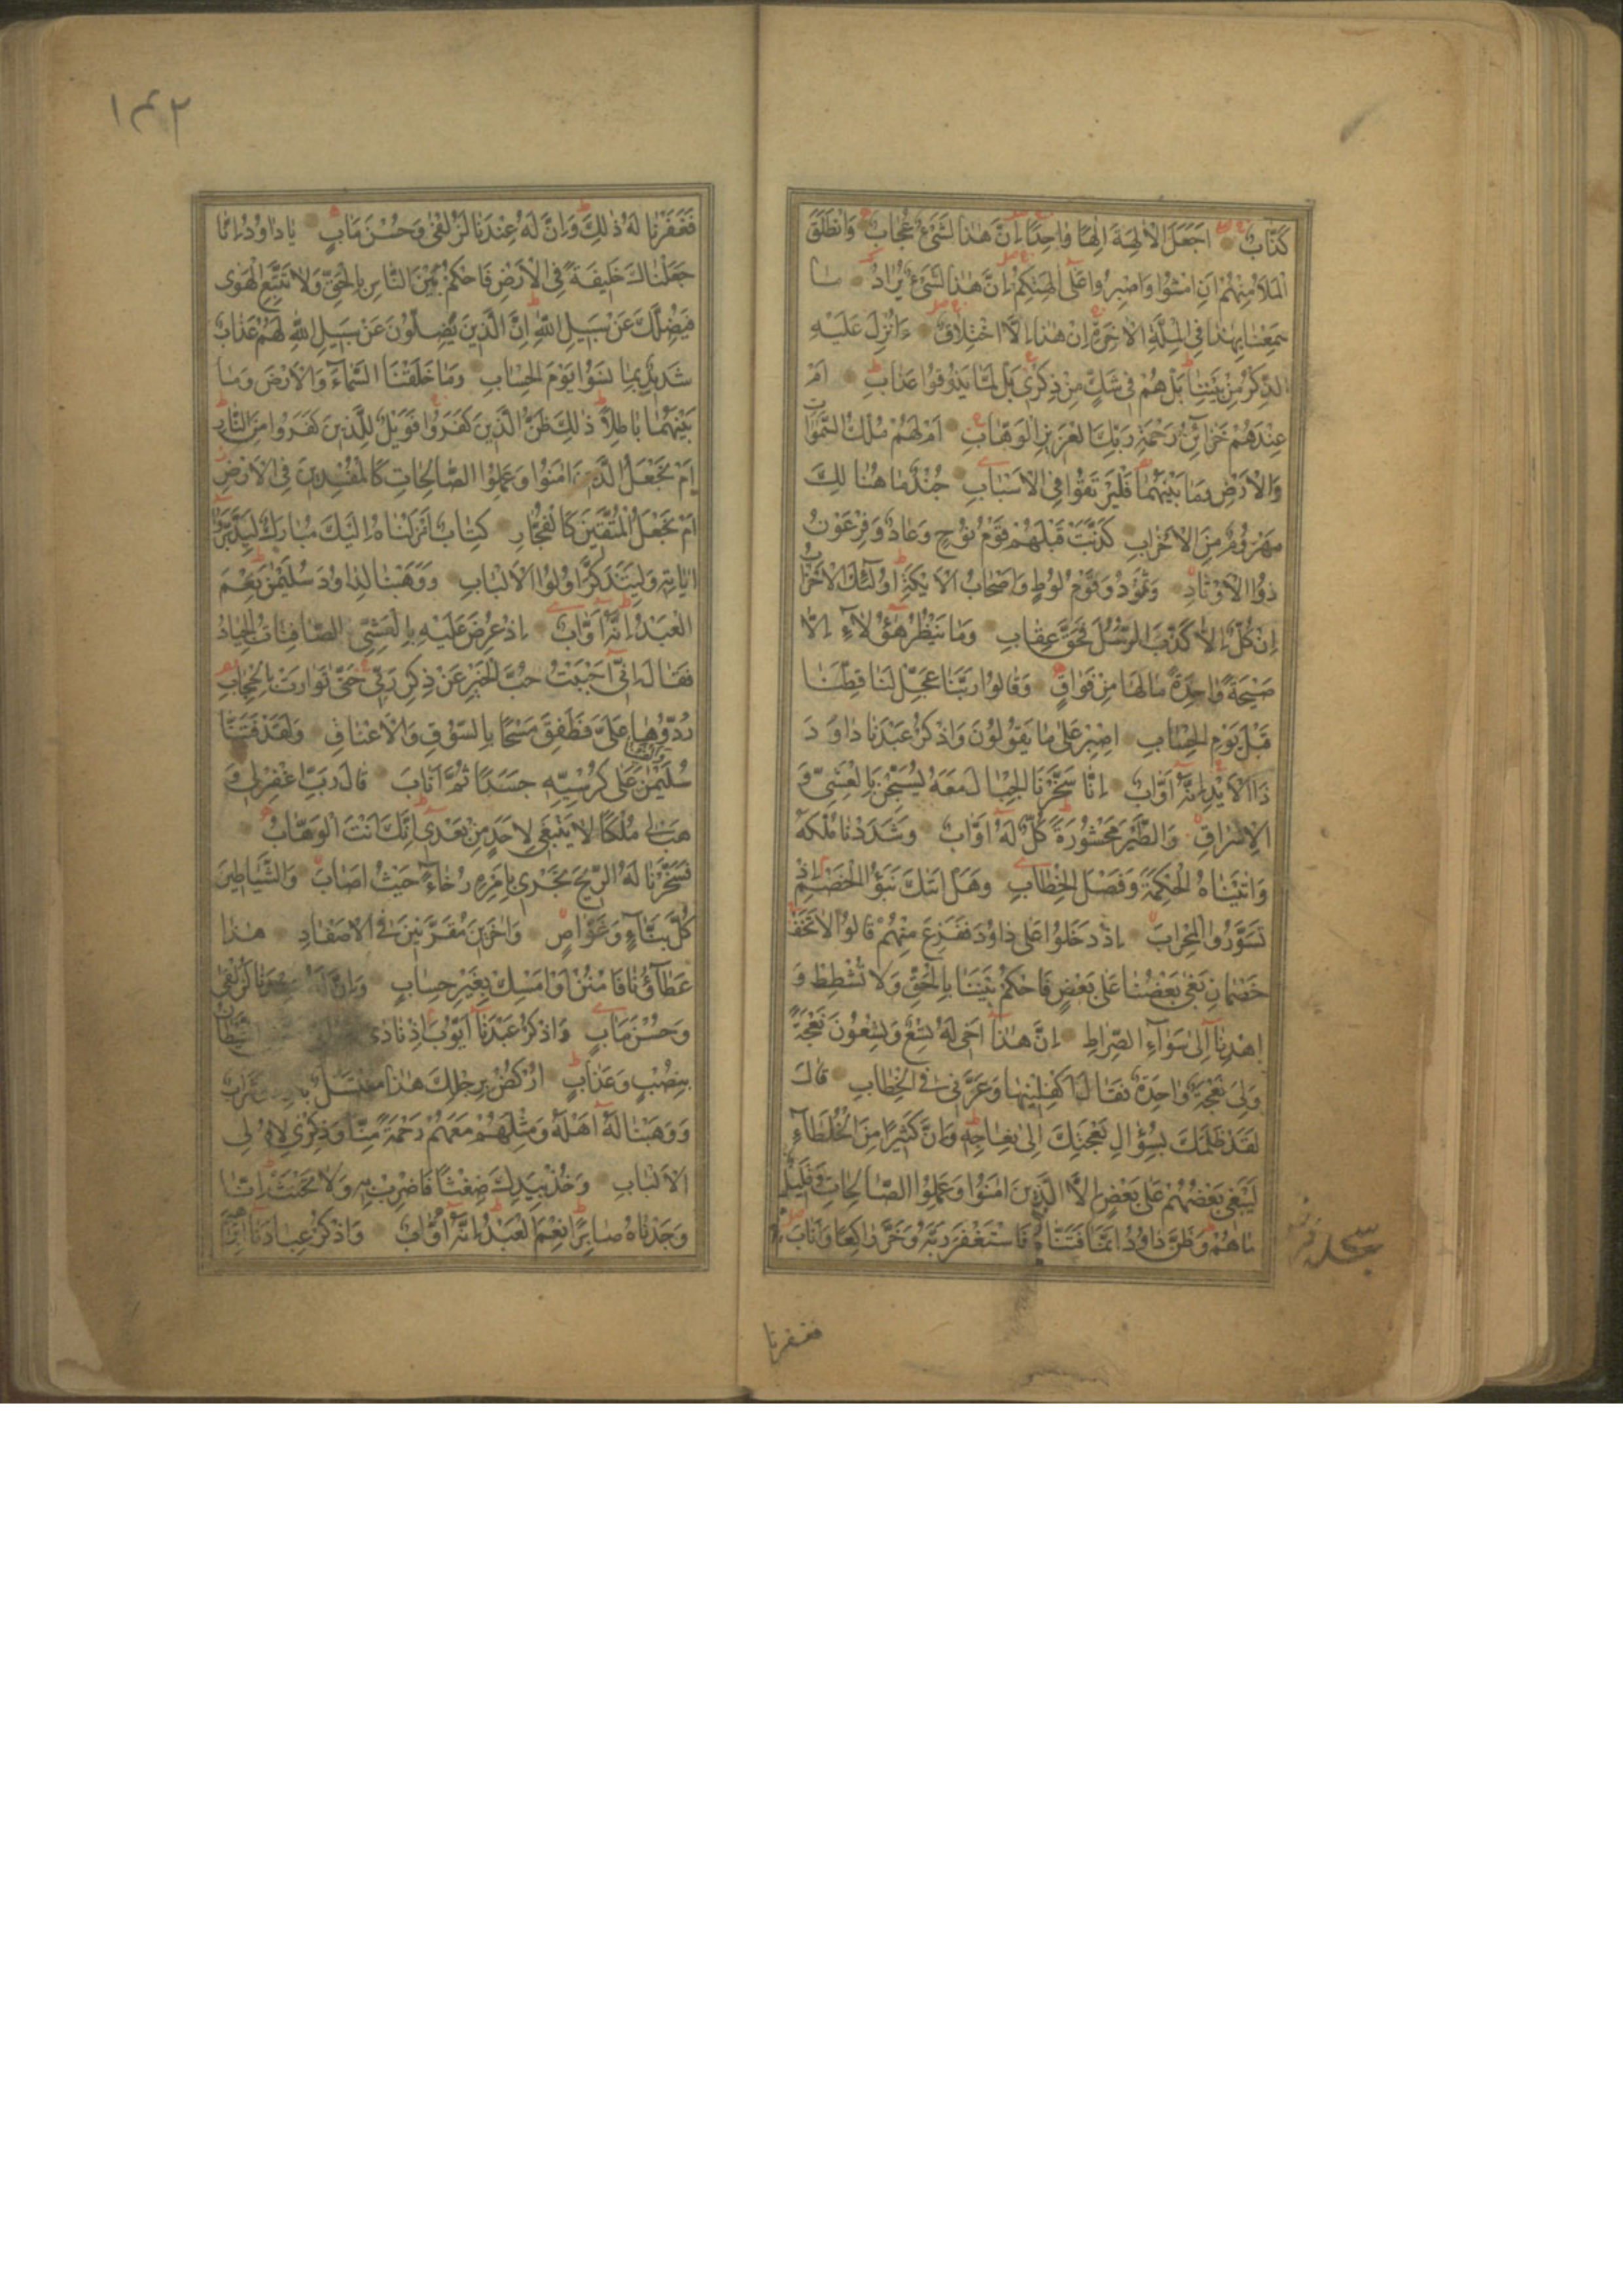 كَذَّابٌ اَجَعَلَ الْاٰلِهَةَ اِلٰهًا وٰاحِدًا اِنَّ هٰذٰا لَشَيْءٌ عُجٰابٌ وَانْطَلَقَ
الْمَلَاُ مِنْهُمْ اَنِ امْشُوا وَاصْبِرُوا عَلٰى اٰلِهَتِكُمْ اِنَّ هٰذٰا لَشَيْءٌ يُرٰادُ مٰا
سَمِعْنٰا بِهٰذٰا فِي الْمِلَّةِ الْاٰخِرَةِ اِنْ هٰذٰا اِلَّا اخْتِلٰاقٌ ءَاُنْزِلَ عَلَيْهِ
الذِّكْرُ مِنْ بَيْنِنٰا بَلْ هُمْ فِي شَكٍّ مِنْ ذِكْرِي بَلْ لَمّٰا يَذُوقُوا عَذٰابِ اَمْ
عِنْدَهُمْ خَزٰآئِنُ رَحْمَةِ رَبِّكَ الْعَزِيزِ الْوَهّٰابِ اَمْ لَهُمْ مُلْكُ السَّمٰوٰاتِ
وَالْاَرْضِ وَمٰا بَيْنَهُمٰا فَلْيَرْتَقُوا فِي الْاَسْبٰابِ جُنْدٌ مٰا هُنٰالِكَ
مَهْزُومٌ مِنَ الْاَحْزٰابِ كَذَّبَتْ قَبْلَهُمْ قَوْمُ نُوحٍ وَعٰادٌ وَفِرْعَوْنُ
ذُو الْاَوْتٰادِ وَثَمُودُ وَقَوْمُ لُوطٍ وَاَصْحٰابُ الْاَيْكَةِ اُولٰٓئِكَ الْاَحْزٰابُ
اِنْ كُلٌّ اِلَّا كَذَّبَ الرُّسُلَ فَحَقَّ عِقٰابِ وَمٰا يَنْظُرُ هٰٓؤُلٰآءِ اِلّٰا
صَيْحَةً وٰاحِدَةً مٰا لَهٰا مِنْ فَوٰاقٍ وَقٰالُوا رَبَّنٰا عَجِّلْ لَنٰا قِطَّنٰا
قَبْلَ يَوْمِ الْحِسٰابِ اِصْبِرْ عَلٰى مٰا يَقُولُونَ وَاذْكُرْ عَبْدَنٰا دٰاوُدَ
ذَا الْاَيْدِ اِنَّهُ اَوّٰابٌ اِنّٰا سَخَّرْنَا الْجِبٰالَ مَعَهُ يُسَبِّحْنَ بِالْعَشِيِّ وَ
الْاِشْرٰاقِ وَالطَّيْرَ مَحْشُورَةً كُلٌّ لَهُ اَوّٰابٌ وَشَدَدْنٰا مُلْكَهُ
وَاٰتَيْنٰاهُ الْحِكْمَةَ وَفَصْلَ الْخِطٰابِ وَهَلْ اَتٰيكَ نَبَؤُا الْخَصْمِ اِذْ
تَسَوَّرُوا الْمِحْرٰابَ اِذْ دَخَلُوا عَلٰى دٰاوُدَ فَفَزِعَ مِنْهُمْ قٰالُوا لٰا تَخَفْ
خَصْمٰانِ بَغٰى بَعْضُنٰا عَلٰى بَعْضٍ فَاحْكُمْ بَيْنَنٰا بِالْحَقِّ وَلٰا تُشْطِطْ وَ
اهْدِنٰا اِلٰى سَوٰآءِ الصِّرٰاطِ اِنَّ هٰذٰا اَخِي لَهُ تِسْعٌ وَتِسْعُونَ نَعْجَةً
وَلِيَ نَعْجَةٌ وٰاحِدَةٌ فَقٰالَ اَكْفِلْنِيهٰا وَعَزَّنِي فِي الْخِطٰابِ قٰالَ
لَقَدْ ظَلَمَكَ بِسُؤٰالِ نَعْجَتِكَ اِلٰى نِعٰاجِهِ وَاِنَّ كَثِيرًا مِنَ الْخُلَطٰآءِ
لَيَبْغِي بَعْضُهُمْ عَلٰى بَعْضٍ اِلَّا الَّذِينَ اٰمَنُوا وَعَمِلُوا الصّٰالِحٰاتِ وَقَلِيلٌ
مٰا هُمْ وَظَنَّ دٰاوُدُ اَنَّمٰا فَتَنّٰاهُ فَاسْتَغْفَرَ رَبَّهُ وَخَرَّ رٰاكِعًا وَاَنٰابَ
فغفرنا
١٤٢
فَغَفَرْنٰا لَهُ ذٰلِكَ وَاِنَّ لَهُ عِنْدَنٰا لَزُلْفٰى وَحُسْنَ مَاٰبٍ يٰا دٰاوُدُ اِنّٰا
جَعَلْنٰاكَ خَلِيفَةً فِي الْاَرْضِ فَاحْكُمْ بَيْنَ النّٰاسِ بِالْحَقِّ وَلٰا تَتَّبِعِ الْهَوٰى
فَيُضِلَّكَ عَنْ سَبِيلِ اللّٰهِ اِنَّ الَّذِينَ يَضِلُّونَ عَنْ سَبِيلِ اللّٰهِ لَهُمْ عَذٰابٌ
شَدِيدٌ بِمٰا نَسُوا يَوْمَ الْحِسٰابِ وَمٰا خَلَقْنَا السَّمٰآءَ وَالْاَرْضَ وَمٰا
بَيْنَهُمٰا بٰاطِلًا ذٰلِكَ ظَنُّ الَّذِينَ كَفَرُوا فَوَيْلٌ لِلَّذِينَ كَفَرُوا مِنَ النّٰارِ
اَمْ نَجْعَلُ الَّذِينَ اٰمَنُوا وَعَمِلُوا الصّٰالِحٰاتِ كَالْمُفْسِدِينَ فِي الْاَرْضِ
اَمْ نَجْعَلُ الْمُتَّقِينَ كَالْفُجّٰارِ كِتٰابٌ اَنْزَلْنٰاهُ اِلَيْكَ مُبٰارَكٌ لِيَدَّبَّرُوا
اٰيٰاتِهِ وَلِيَتَذَكَّرَ اُولُوا الْاَلْبٰابِ وَوَهَبْنٰا لِدٰاوُدَ سُلَيْمٰنَ نِعْمَ
الْعَبْدُ اِنَّهُ اَوّٰابٌ اِذْ عُرِضَ عَلَيْهِ بِالْعَشِيِّ الصّٰافِنٰاتُ الْجِيٰادُ
فَقٰالَ اِنِّي اَحْبَبْتُ حُبَّ الْخَيْرِ عَنْ ذِكْرِ رَبِّي حَتّٰى تَوٰارَتْ بِالْحِجٰابِ
رُدُّوهٰا عَلَيَّ فَطَفِقَ مَسْحًا بِالسُّوقِ وَالْاَعْنٰاقِ وَلَقَدْ فَتَنّٰا
سُلَيْمٰنَ وَاَلْقَيْنٰا عَلٰى كُرْسِيِّهِ جَسَدًا ثُمَّ اَنٰابَ قٰالَ رَبِّ اغْفِرْ لِي وَ
هَبْ لِي مُلْكًا لٰا يَنْبَغِي لِاَحَدٍ مِنْ بَعْدِي اِنَّكَ اَنْتَ الْوَهّٰابُ
فَسَخَّرْنٰا لَهُ الرِّيحَ تَجْرِي بِاَمْرِهِ رُخٰآءً حَيْثُ اَصٰابَ وَالشَّيٰاطِينَ
كُلَّ بَنّٰآءٍ وَغَوّٰاصٍ وَاٰخَرِينَ مُقَرَّنِينَ فِي الْاَصْفٰادِ هٰذٰا
عَطٰآؤُنٰا فَامْنُنْ اَوْ اَمْسِكْ بِغَيْرِ حِسٰابٍ وَاِنَّ لَهُ عِنْدَنٰا لَزُلْفٰى
وَحُسْنَ مَاٰبٍ وَاذْكُرْ عَبْدَنٰا اَيُّوبَ اِذْ نٰادٰى الشَّيْطٰانُ
بِنُصْبٍ وَعَذٰابٍ اُرْكُضْ بِرِجْلِكَ هٰذٰا مُغْتَسَلٌ بٰارِدٌ وَشَرٰابٌ
وَوَهَبْنٰا لَهُ اَهْلَهُ وَمِثْلَهُمْ مَعَهُمْ رَحْمَةً مِنّٰا وَذِكْرٰى لِاُولِي
الْاَلْبٰابِ وَخُذْ بِيَدِكَ ضِغْثًا فَاضْرِبْ بِهِ وَلٰا تَحْنَثْ اِنّٰا
وَجَدْنٰاهُ صٰابِرًا نِعْمَ الْعَبْدُ اِنَّهُ اَوّٰابٌ وَاذْكُرْ عِبٰادَنٰا